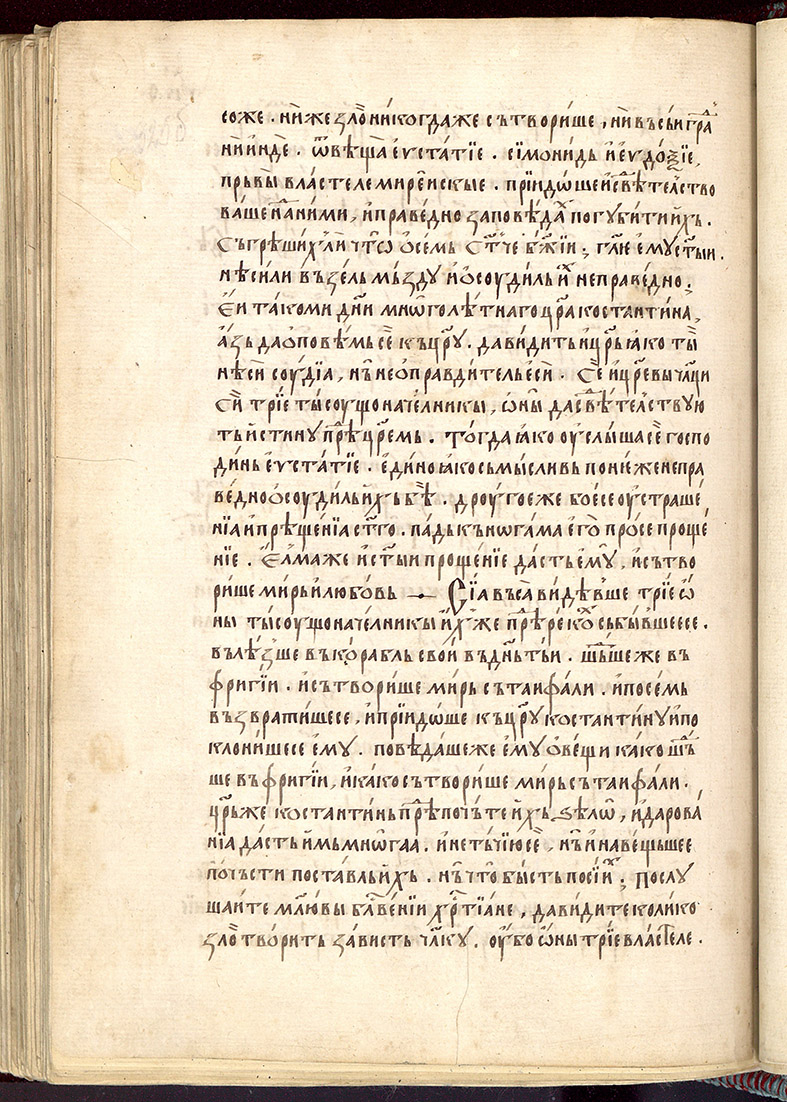 соже . ни́же ѕло̀ ни́когда́же сътвори́ше , ни̏ въсъи гра́
ни̏ и́нде̏ . ѿвѣща̀ еѵста́тїе . сїмони́дь и҆ еѵдо́ѯїе ,
прьвы́ властеле мирє́искые . прїидо́ше и҆ свѣ́тел҇ство
ва́ше на́ ни́ми , и҆ пра́ведно заповѣ́дахь погуби́ти и҆́хь .
Съгрѣши́х ли̏ что̀ ѡ҆ се́мь ст҃че бж҃їи ; гл҃ю е҆му ст҃ыи .
нѣси́ ли възе́ль мъзду̀ и҆ ѡ҆соуди́ль и҆х непра́ведно .
Е҆и та́ко ми дн҃и мнѡ́голѣтнаго цр҃а костанти́на ,
а҆́зь да ѡ҆повѣ́мь сѐ къ цр҃у . да ви́дить и҆ цр҃ь ꙗко ты̏
нѣси̏ соудїа̀ , нь̏ неѡ҆правди́тель е҆си̏ . Се̏ и҆ цр҃евы чл҃ци
си̏ трїе̏ ты́соущонача́лникы , ѡ҆́ны да свѣ́тел҇ствую
ть и́стину прѣ́ цр҃емь . тогда̀ ꙗко оуслы́ша сѐ госпо
ди́нь еѵста́тїе . е҆ди́но ꙗко съмы́сливь поне́же непра
ве́дно ѡ҆соуди́ль и҆́хь бѣ̏ . дроуго́е же бое́се оустраше́
нїа и҆ прѣще́нїа ст҃го . па́дь къ нѡга́ма е҆го̀ про́се проще́
нїе . Е҆лма́же и҆ ст҃ыи проще́нїе да́сть е҆му̏ , и҆ сътво
ри́ше ми́рь и҆ любо́вь — Сїа̀ въса̀ ви́дѣвше трїе̏ ѡ҆́
ны ты́соущонача́лникы и҆́х же прѣ́ре́кох събы́вшеесе .
вълѣ́зше въ кора́бль свои̏ въ дн҃ь тъи . шь́ше же въ
фриги́и . и҆ сътвори́ше ми́рь съ таифа́ли . и҆ по се́мь
възврати́шесе , и҆ прїидо́ше къ цр҃у костанти́ну и҆ по
клони́шесе е҆му̀ . повѣ́даше же е҆му ѡ҆ ве́щи ка́ко шь́
ше въ фриги́и , и҆ ка́ко сътвори́ше ми́рь съ таифа́ли .
цр҃ь же костанти́нь прѣ́почьте и҆́хь ѕѣлѡ̀ , и҆ дарова́
нїа да́сть и҆мь мнѡ́гаа . и҆ не тъчїю сѐ , нь̏ и҆ на ве́щьшее
по́чьсти поста́вль и҆́хь . нь̏ что̀ бы́сть по сїих ; послу
ша́ите мл҃ю вы бл҃вени́и хр҇тїа́не , да ви́дите коли́ко
ѕло̀ твори́ть за́висть чл҃ку . оу҆́бо ѡ҆́ны трїе̏ власте́ле .